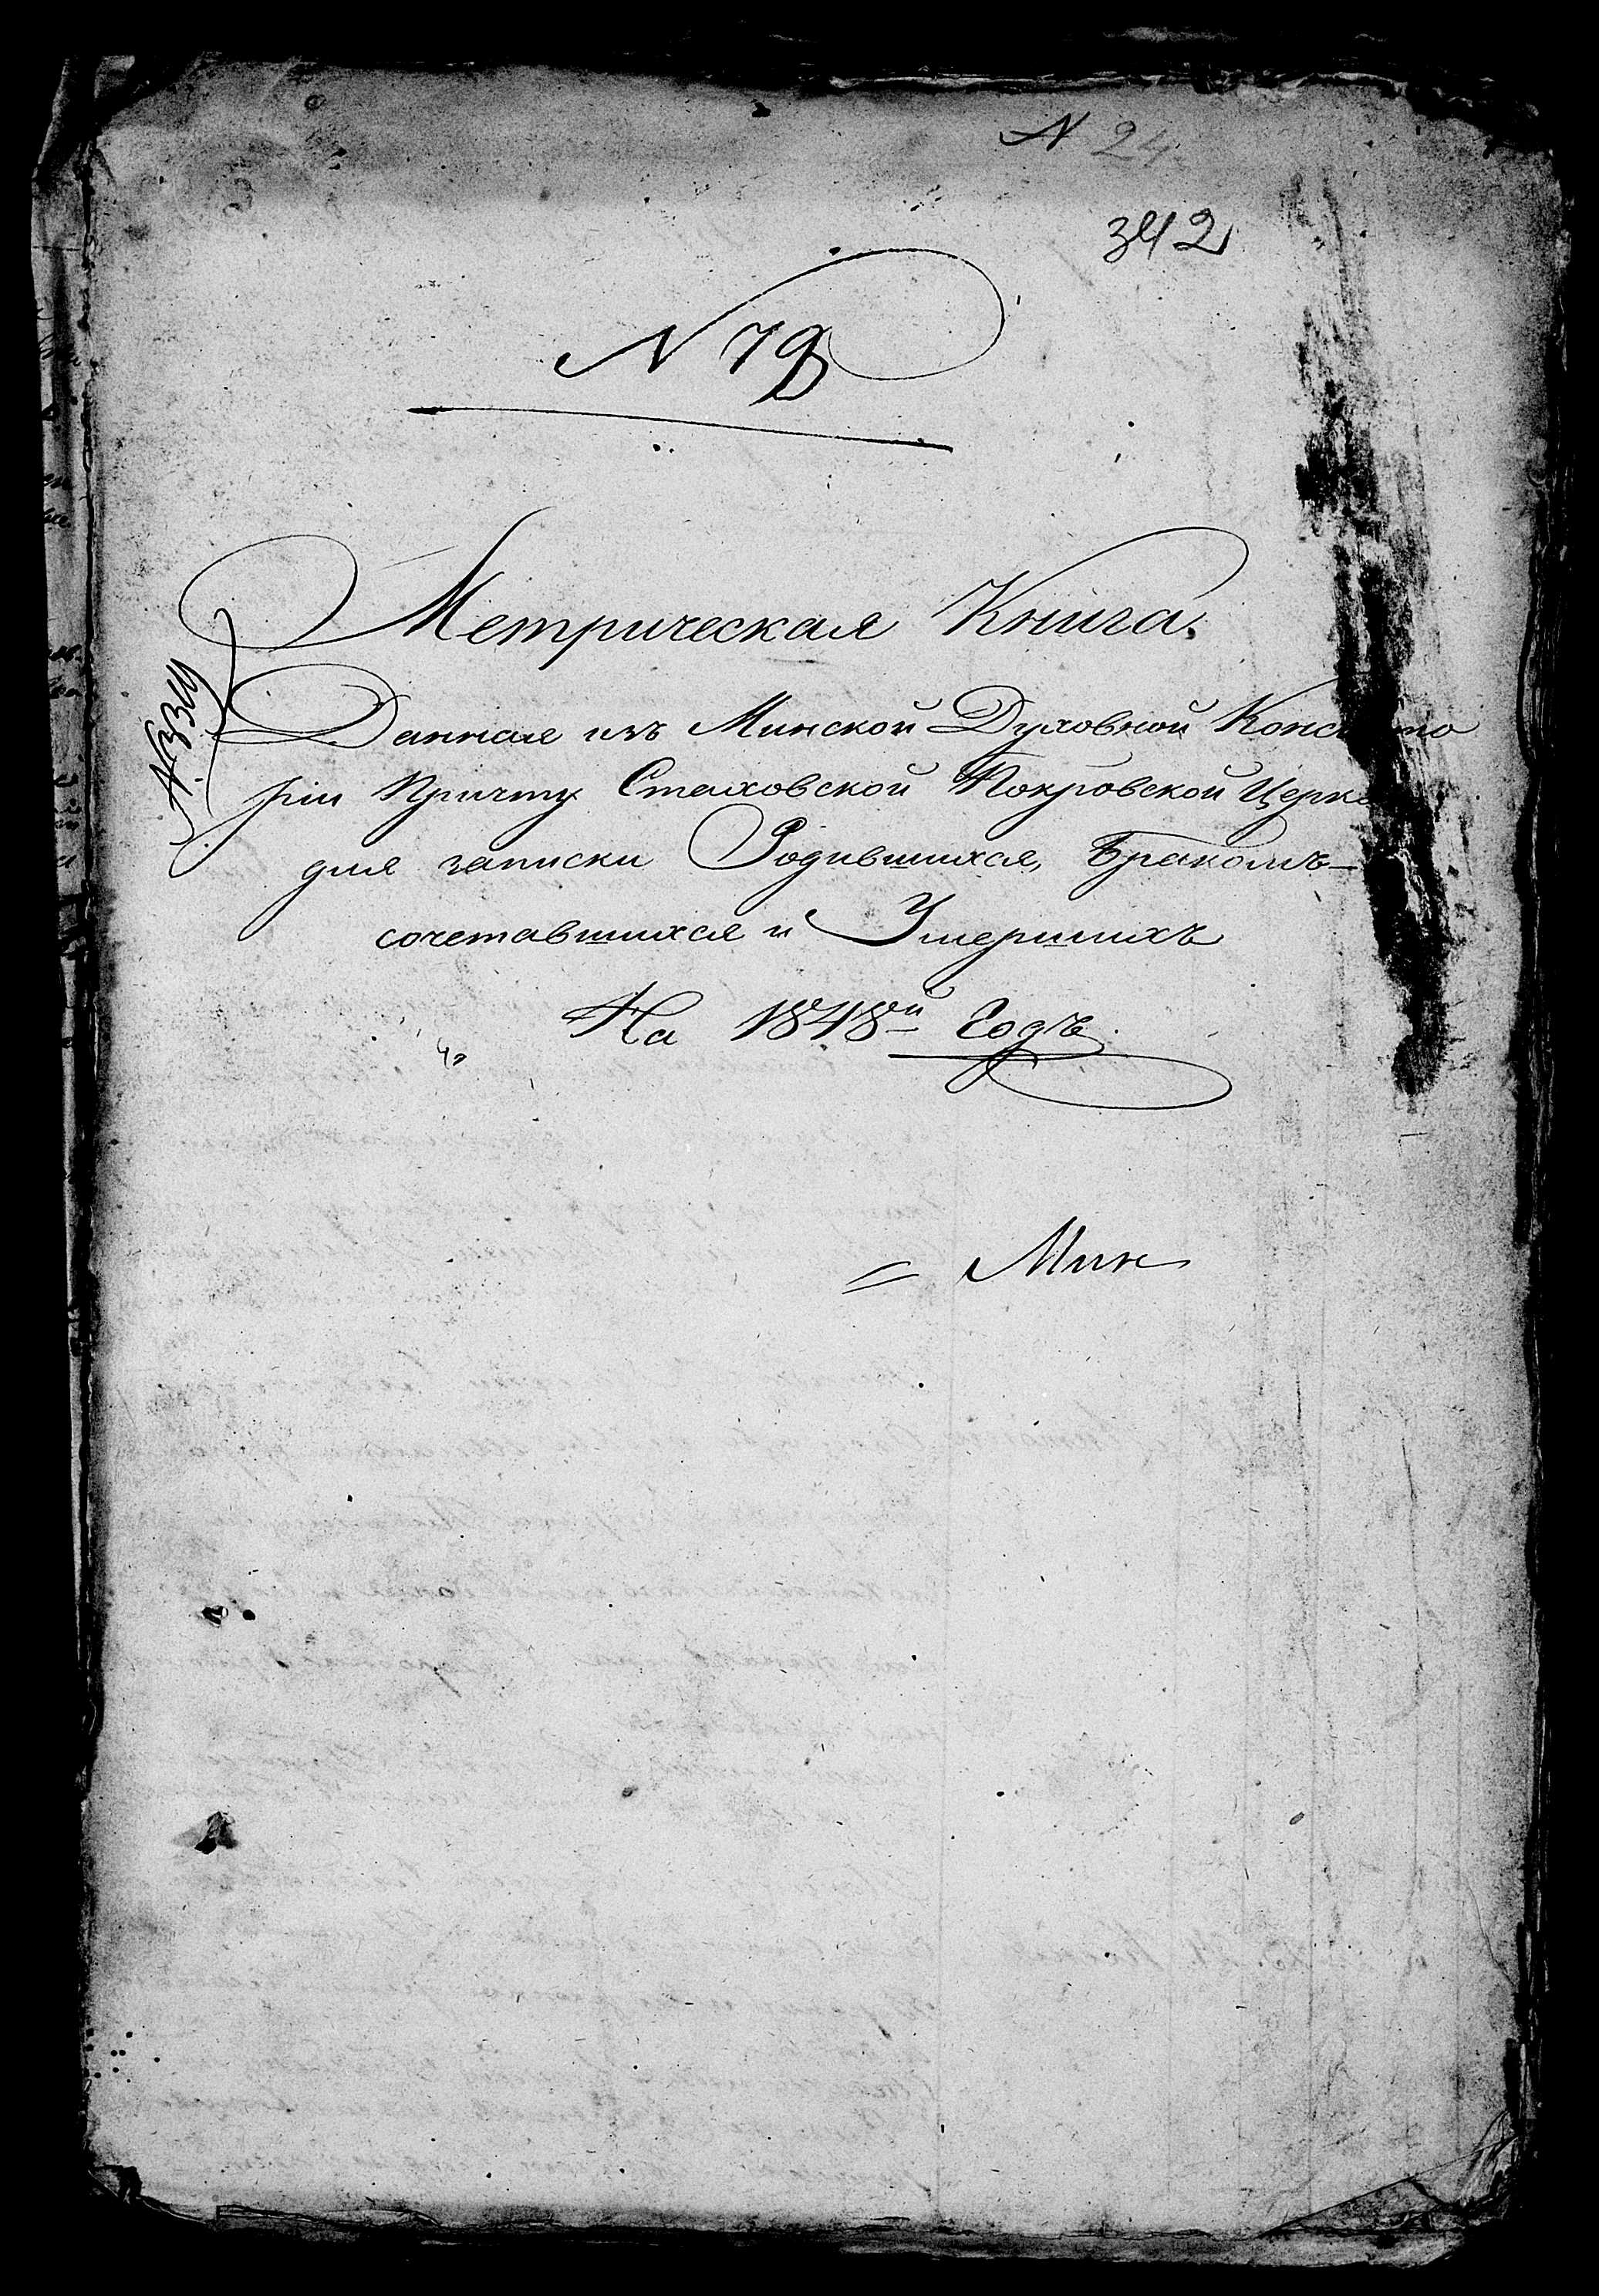 N 24
342
N 79
Метрическая Книга.
Данная изъ Минской Духовной Консисто
ріи Причту Стаховской Покровской Церкви
для записки Родившихся, Бракомъ-
сочетавшихся и Умершихъ
На 1848й Годъ
= Мин